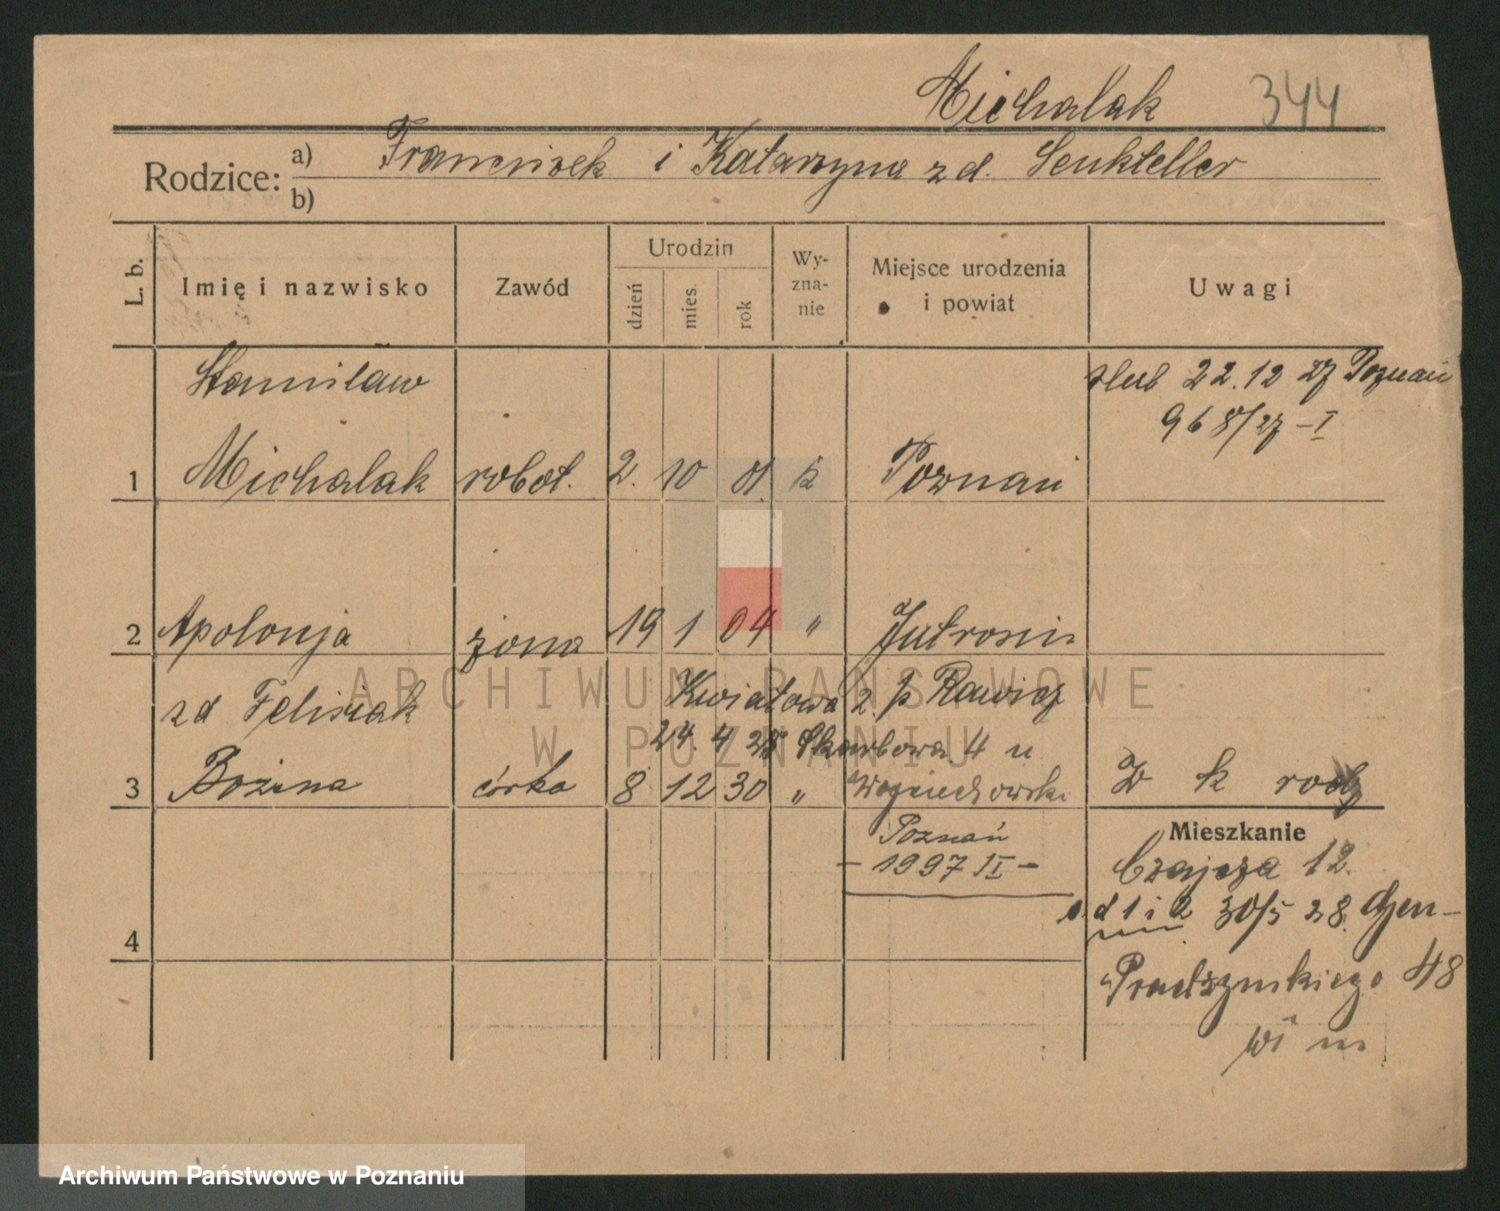 Michalak 344
Rodzice: a) Franciszek i Katarzyna z d. Senkteller
b)
L. b. Imię i nazwisko Zawód Urodzin dzień mies. rok Wy-zna-nie Miejsce urodzenia i powiat Uwagi
Stanisław ślub 22.12 27 Poznań
968/27 – I
1 Michalak robot. 2. 10 01. k Poznań
2 Apolonja żona 19 1 04 " Jutrosin
zd Felisiak Kwiatowa 2. p Rawicz
24. 4 28 Skarbowa 4 u
3 Bożena córka 8 12 30 " Wojciechowski
Poznań
– 1997 II –
Mieszkanie
Czajcza 12.
d 1 i 2 30/5 28. Gen–
4
Prądzyńskiego 48
ARCHIWUM PAŃSTWOWE
W POZNANIU
Archiwum Państwowe w Poznaniu